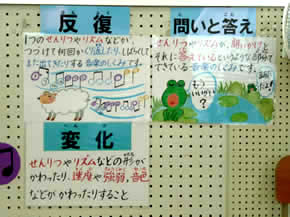 反復
1つのせんりつやリズムなどが
つづけて何回かくり返したり、しばらくして
また出てきたりする音楽のしくみです。
問いと答え
せんりつやリズムが、問いかけと
それに答えているというような部分で
できている音楽のしくみです。
もう
いいかい
?
変化
せんりつやリズムなどの形が
かわったり、速度や強弱、音色
などがかわったりすること